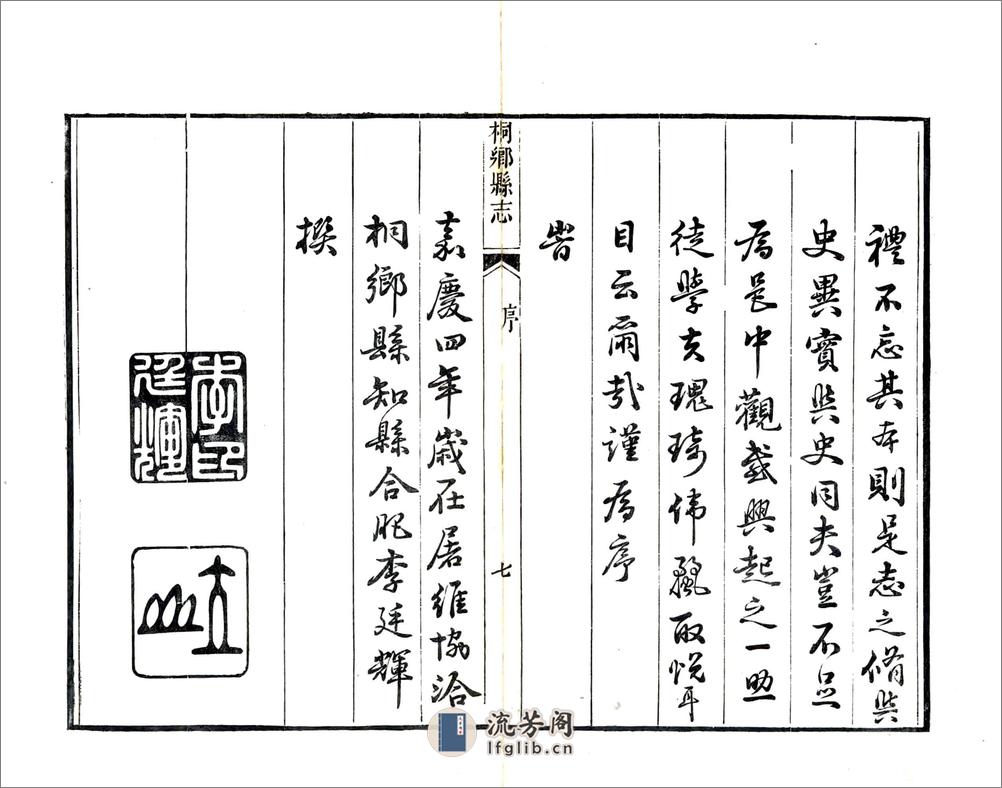 禮不忘其本則是志之脩與
史異實與史同夫豈不足
爲邑中觀感興起之一助
徒學夫瑰琦偉取悅耳
目云爾哉謹爲序
旹
桐鄉縣志
序
七
嘉慶四年歲在屠維協洽
桐鄉縣知縣合肥李廷輝
撰
李印廷輝
流芳阁
lfglib.cn